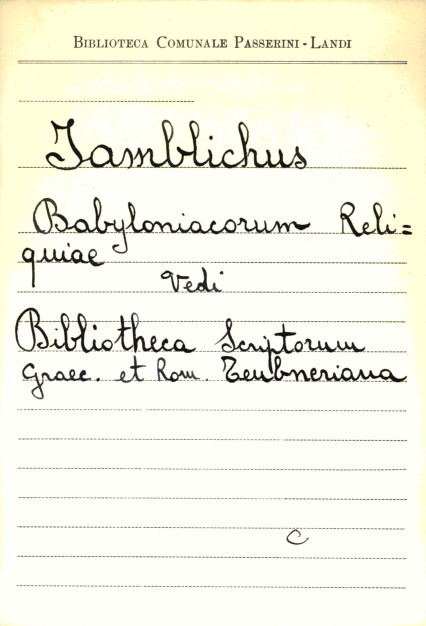 Biblioteca Comunale Passerini - Landi
Jamblichus
Babyloniacorum Reli=
quiae
Vedi
Bibliotheca Scriptorum
Graec. et Rom. Teubneriana
C